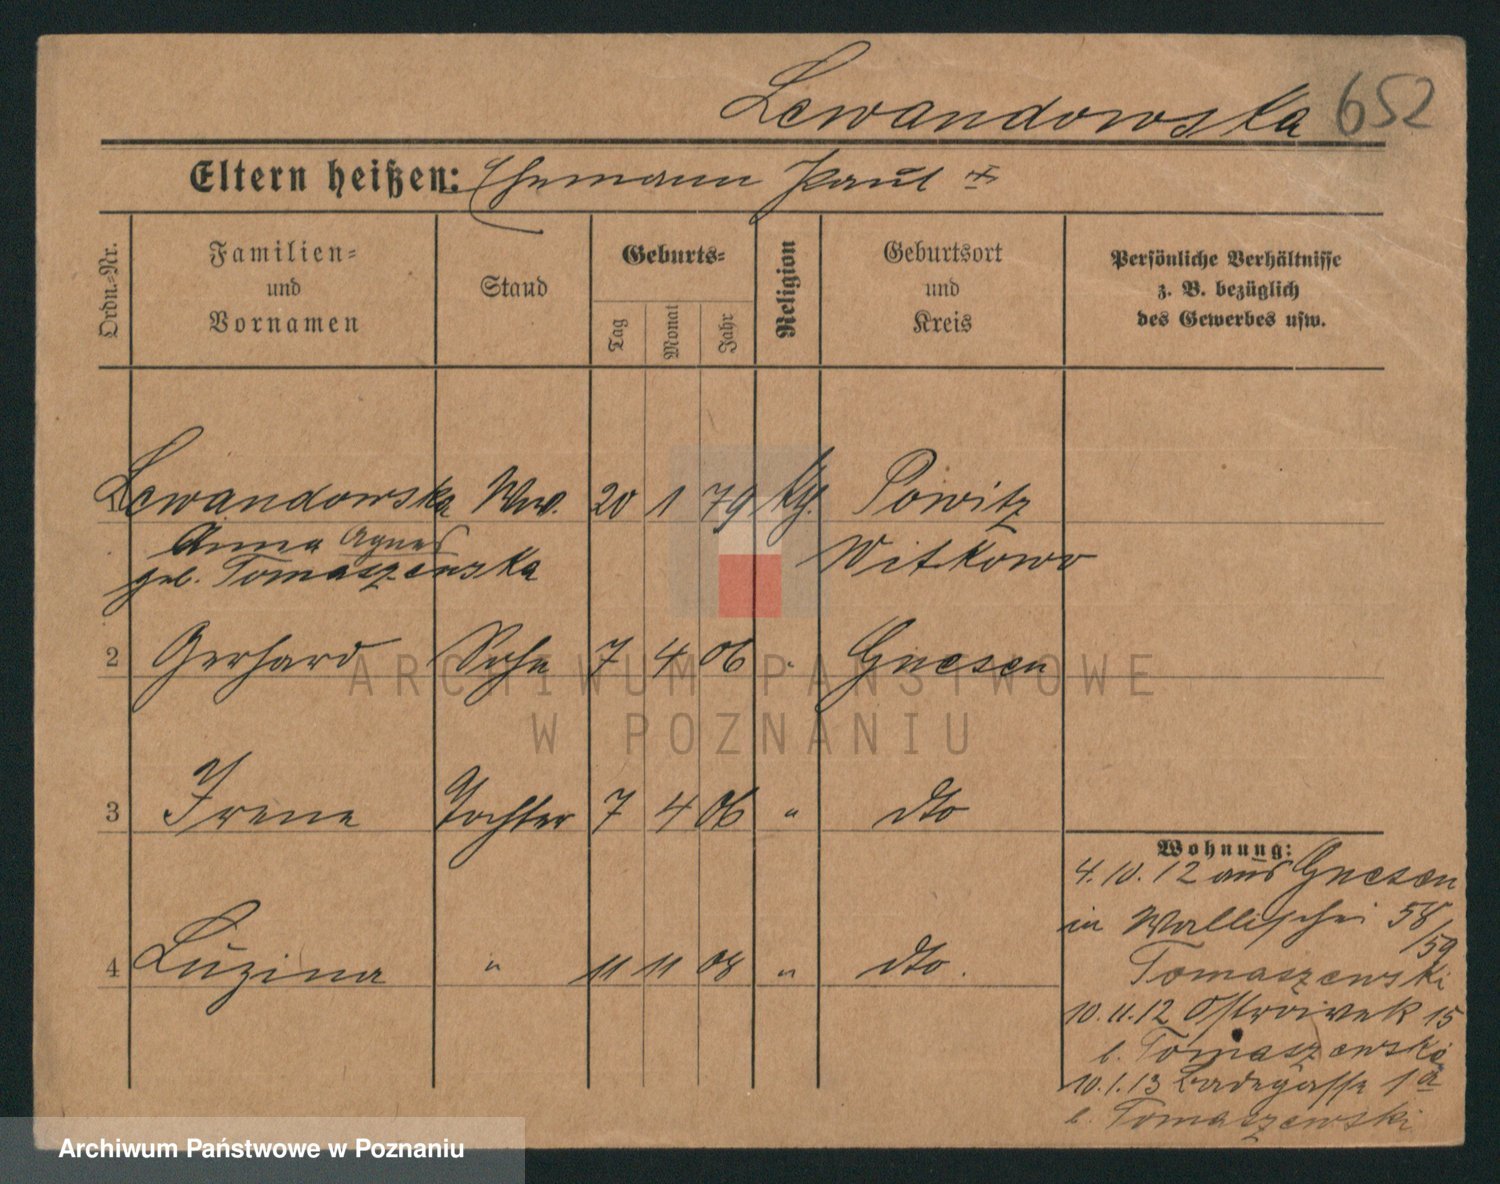 Lewandowska 652
Eltern heißen: Ehemann Paul +
Ordn.-Nr.
Familien-
und
Vornamen
Stand
Geburts-
Tag
Monat
Jahr
Religion
Geburtsort
und
Kreis
Persönliche Verhältnisse
z. B. bezüglich
des Gewerbes usw.
1 Lewandowska Ww. 20 1 79 kg. Powitz
Anna Agnes Witkowo
geb. Tomaszewska
2 Gerhard Sohn 7 4 06 " Gnesen
3 Irene Tochter 7 4 06 " dto
4 Luzina " 11 11 08 " dto.
Wohnung:
4.10.12 aus Gnesen
in Wallischei 58/59
Tomaszewski
10.11.12 Ostrowek 15
b. Tomaszewski
10.1.13 Badegasse 1a
b. Tomaszewski
ARCHIWUM PAŃSTWOWE
W POZNANIU
Archiwum Państwowe w Poznaniu